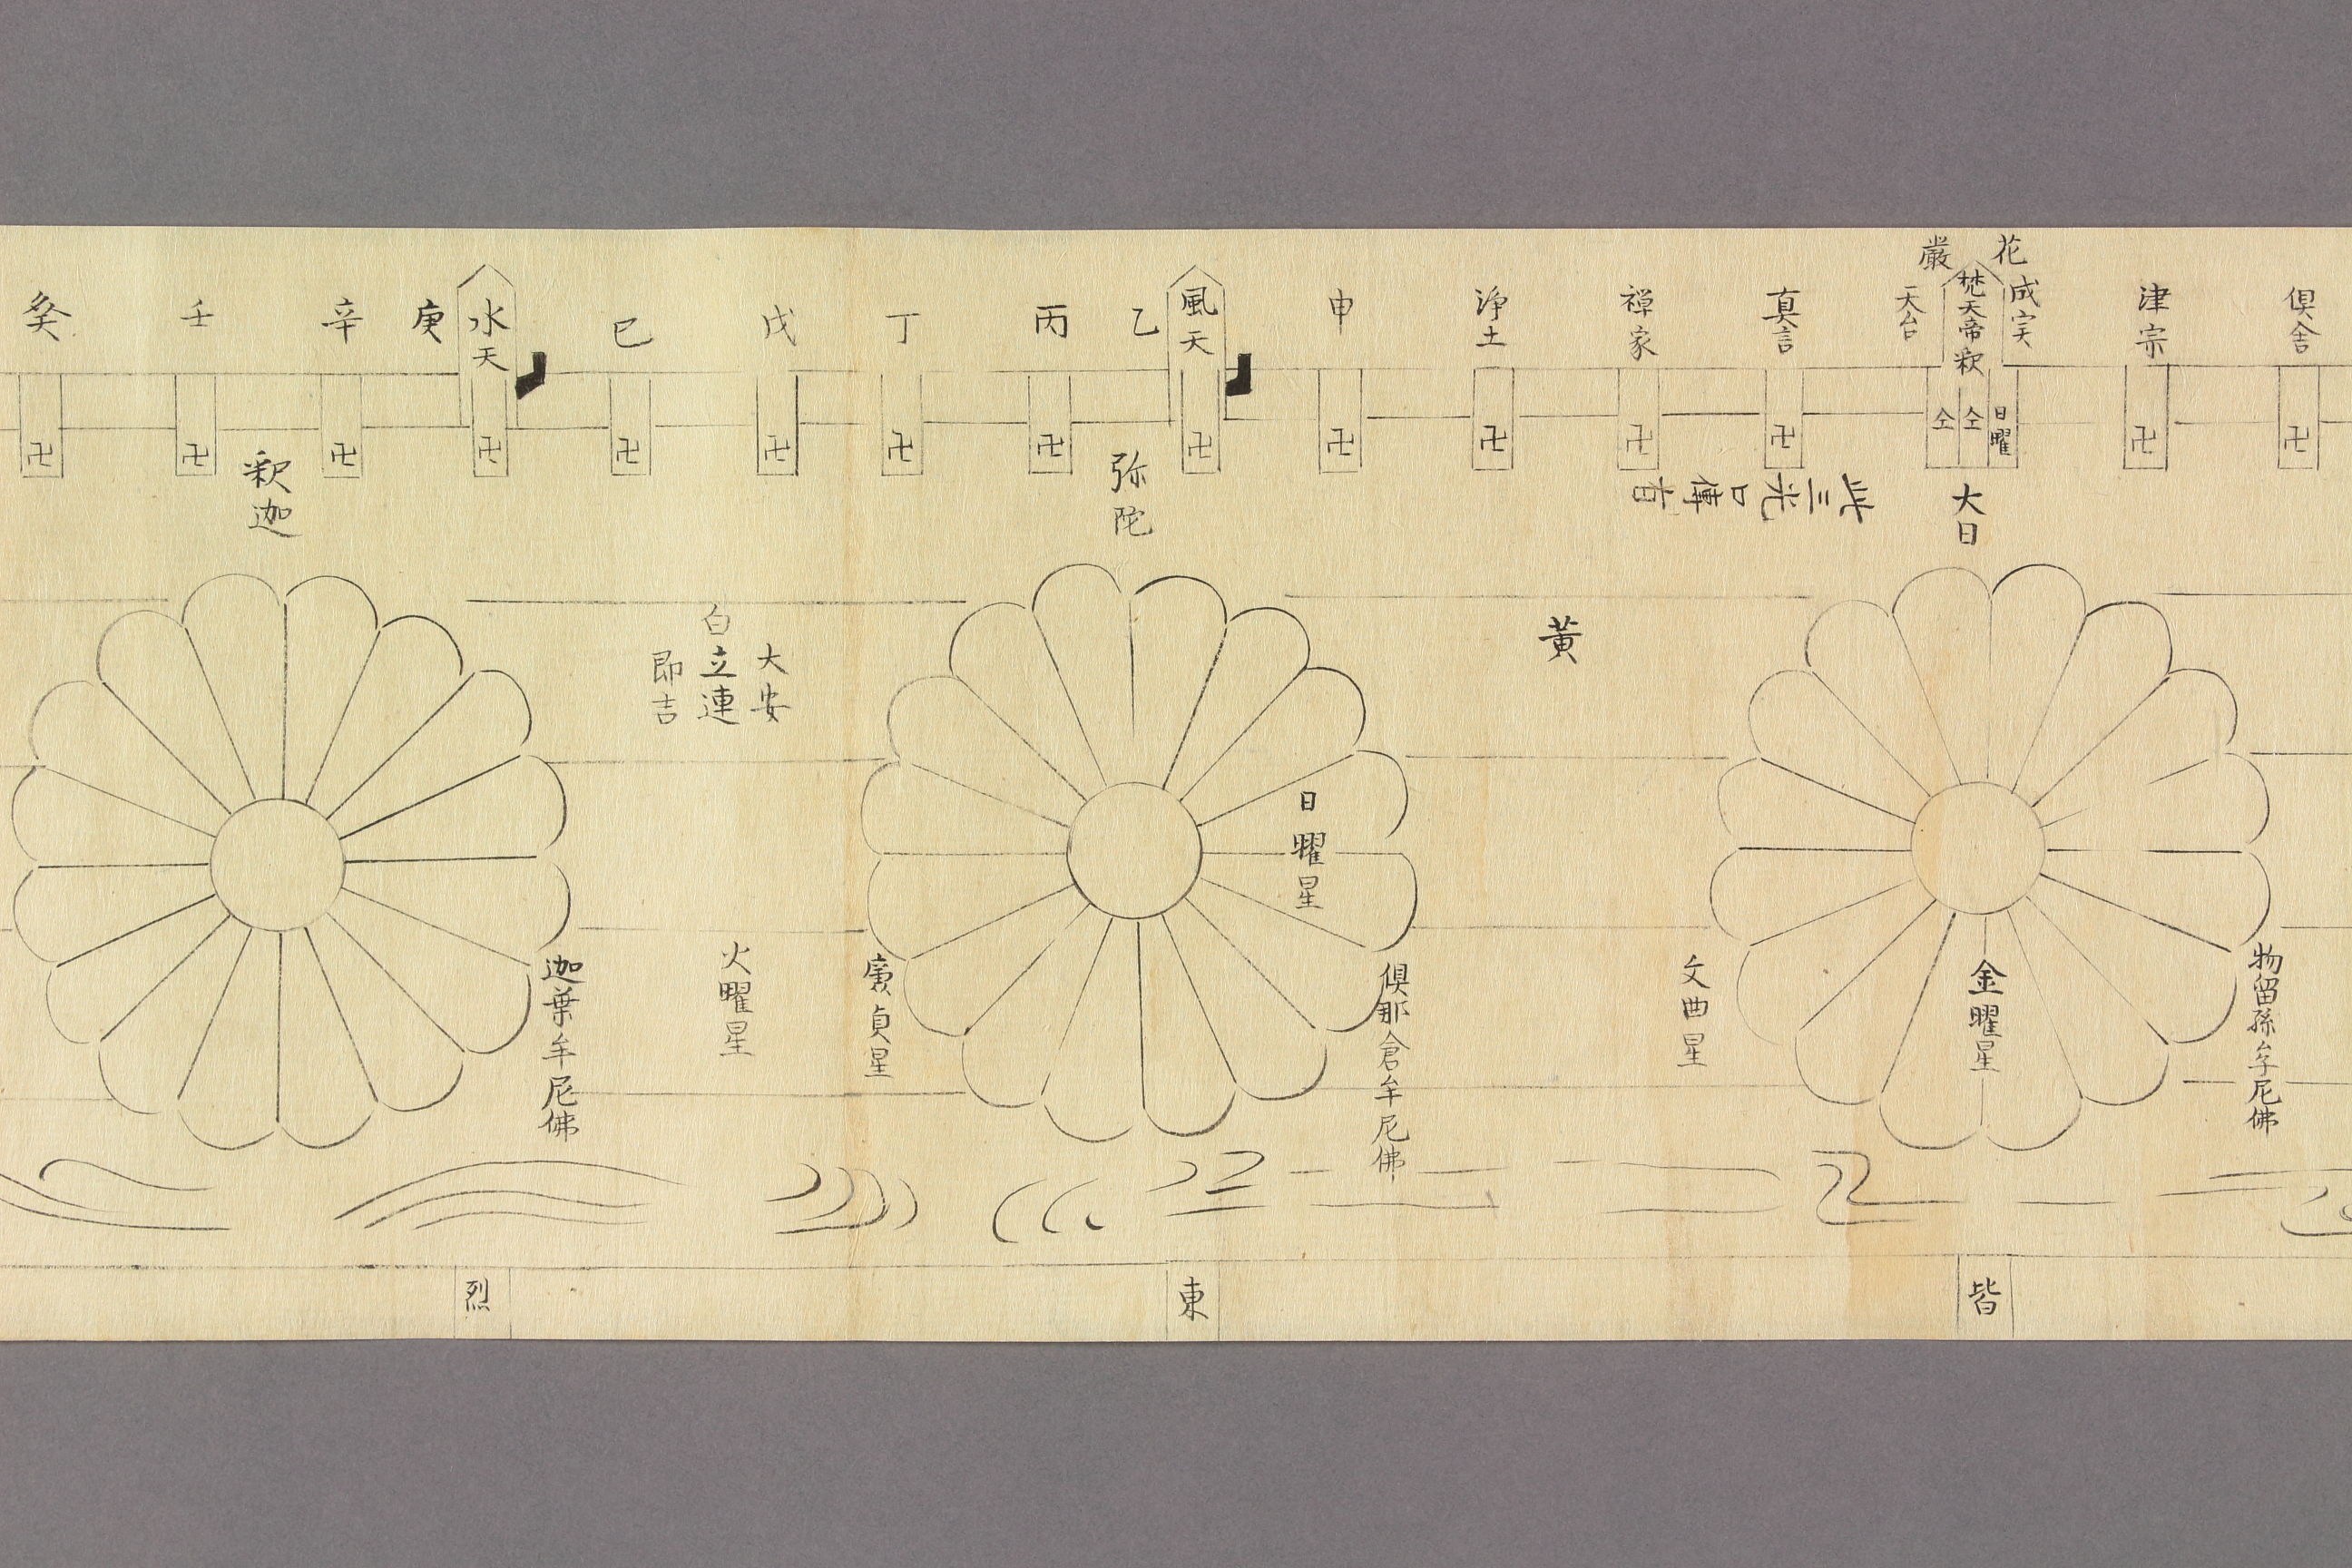 倶舎
津宗
花
嚴
成実
梵天帝釈
天台
真言
禅家
浄土
申
風天
乙
丙
丁
戊
巳
水天
庚
辛
壬
癸
卍
卍
日曜
仝
仝
卍
卍
卍
卍
卍
卍
卍
卍
卍
卍
卍
卍
卍
大日
此三光口傳有
弥陀
釈迦
黄
大安
白立連
即吉
物留孫牟尼佛
金曜星
文曲星
日曜星
倶那倉牟尼佛
廉貞星
火曜星
迦葉牟尼佛
皆
東
烈